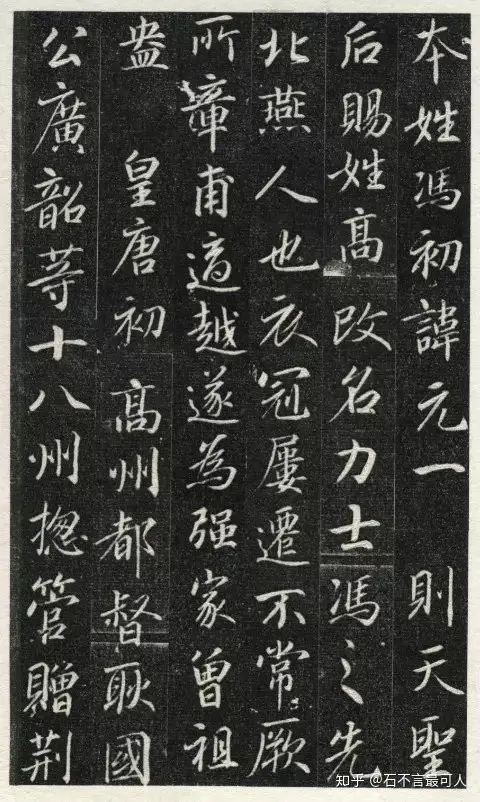 本姓馮初諱元一　則天聖
后賜姓髙改名力士馮之先
北燕人也衣冠屢遷不常厥
所章甫適越遂為强家曾祖
盎　皇唐初髙州都督耿國
公廣韶等十八州揔管贈荆
知乎 @石不言最可人